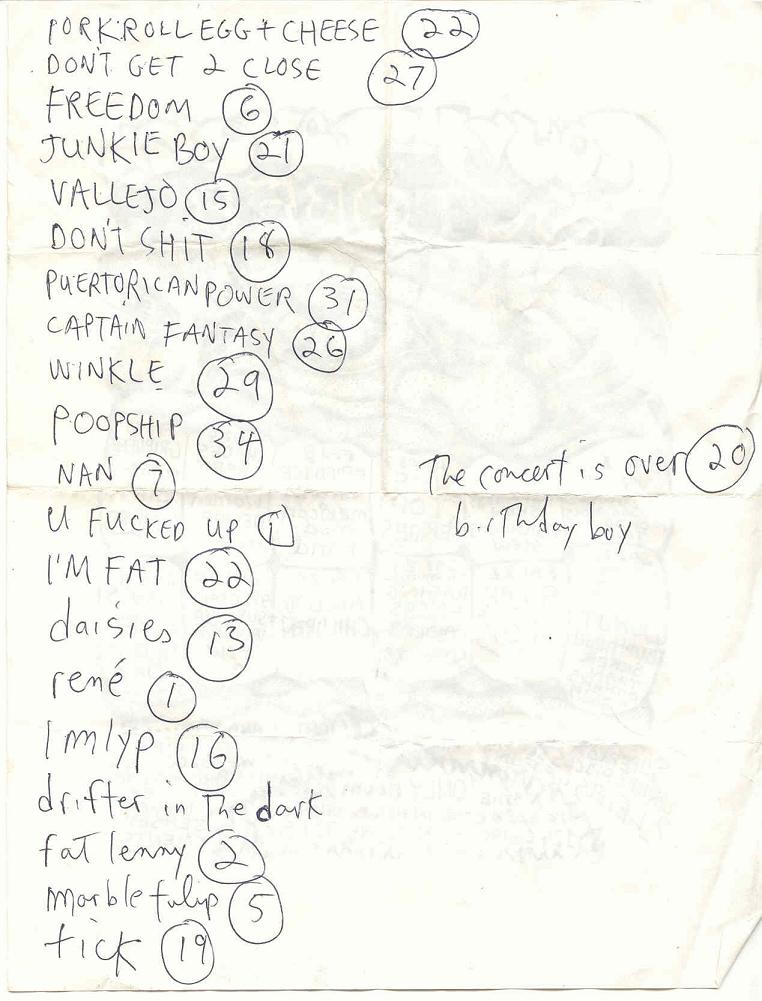 PORK ROLL EGG + CHEESE 22
DON'T GET 2 CLOSE 27
FREEDOM 6
JUNKIE BOY 21
VALLEJO 15
DON'T SHIT 18
PUERTORICAN POWER 31
CAPTAIN FANTASY 26
WINKLE 29
POOPSHIP 34
NAN 7
U FUCKED UP 1
I'M FAT 22
daisies 13
rené 1
lmlyp 16
drifter in the dark
fat lenny 2
marble tulip 5
tick 19
The concert is over 20
birthday boy